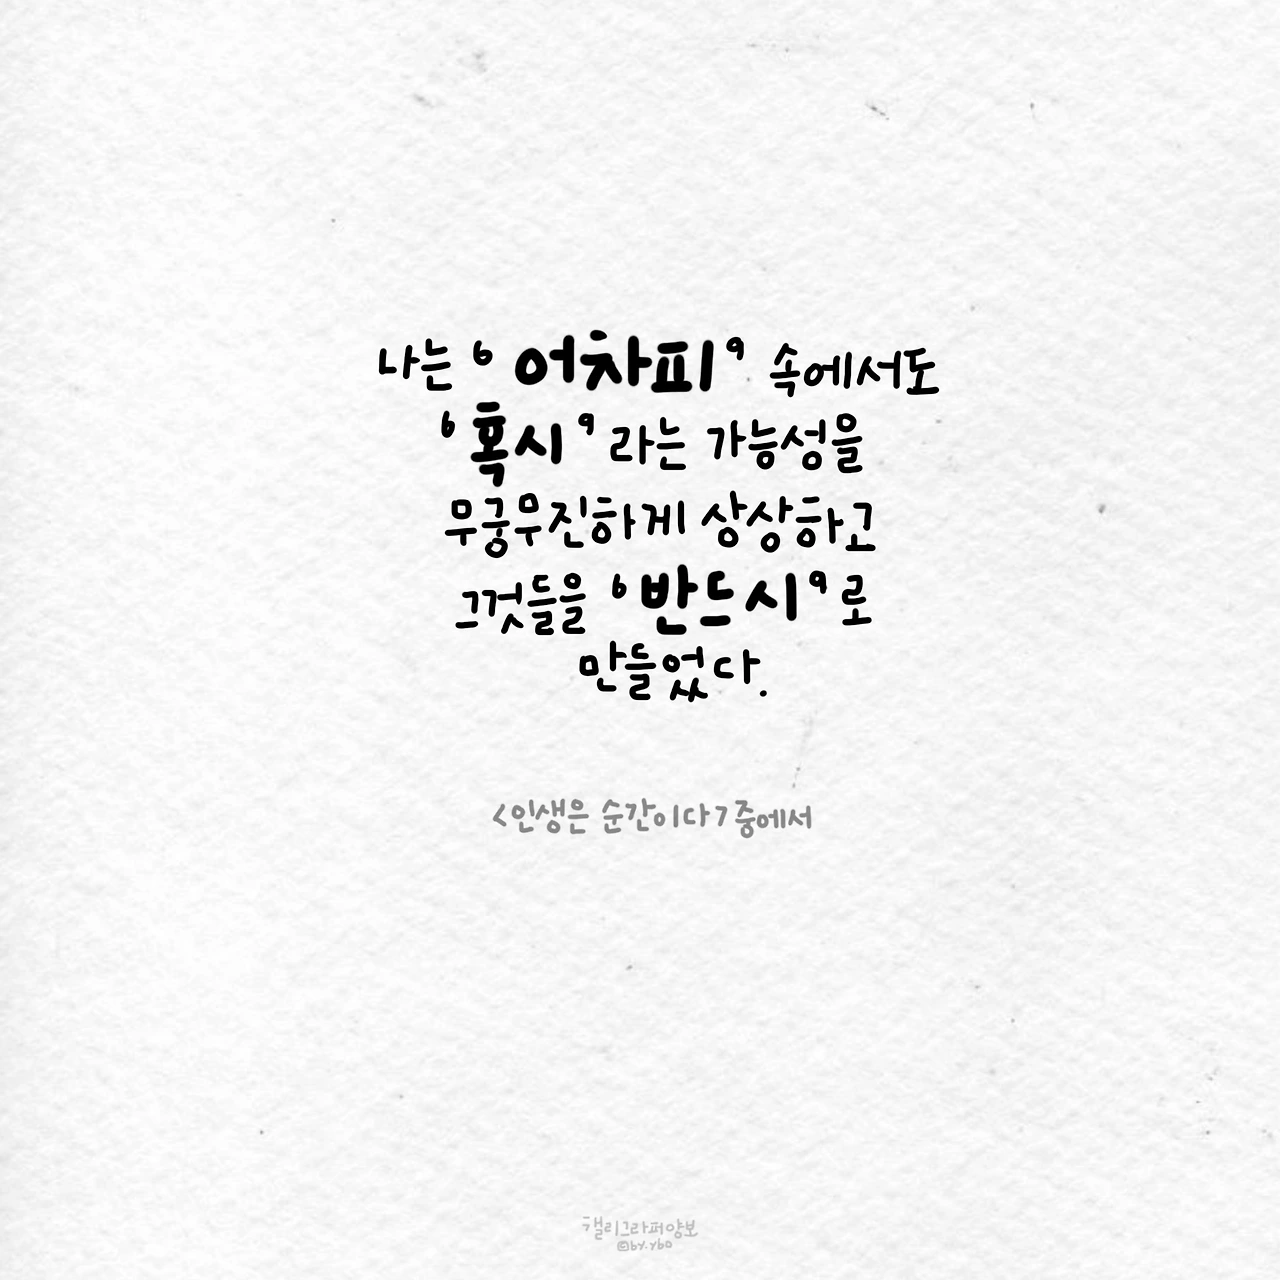 나는 '어차피' 속에서도
'혹시'라는 가능성을
무궁무진하게 상상하고
그것들을 '반드시'로
만들었다.
<인생은 순간이다> 중에서
캘리그라퍼양보
©by.ybo